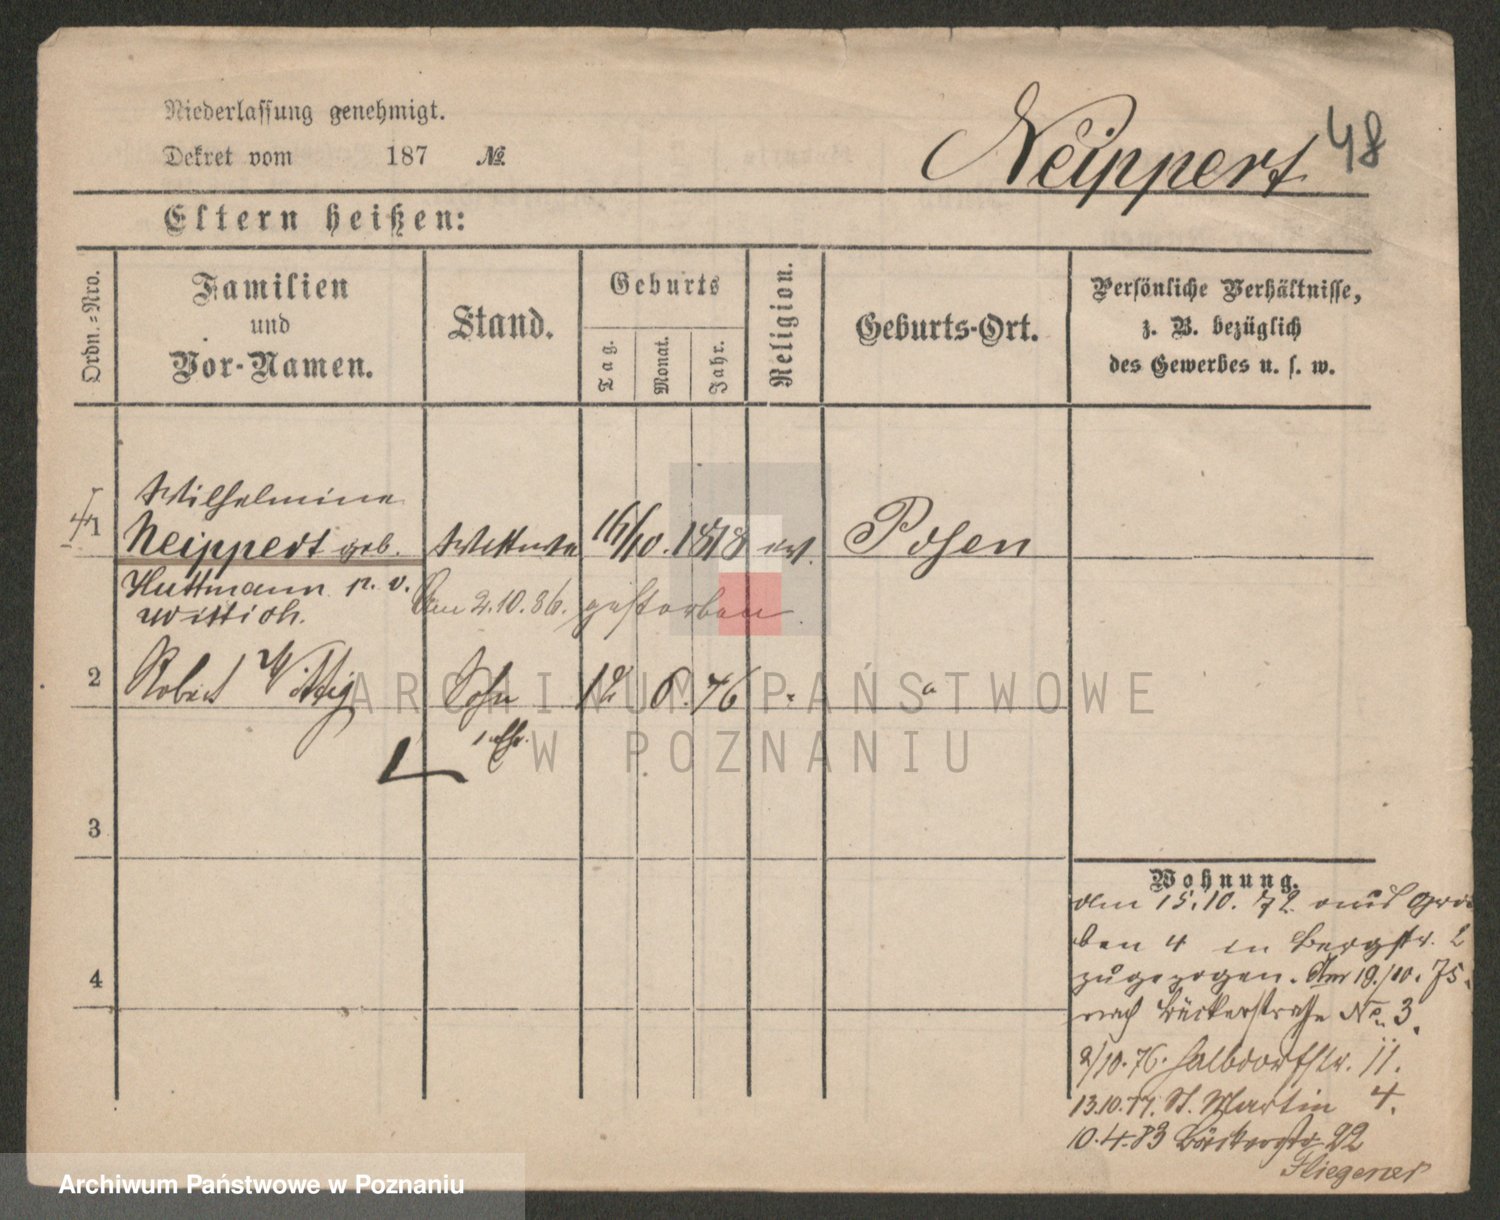 Niederlassung genehmigt.
Dekret vom 187 №
Neippert 48
Eltern heißen:
Ordn.-Nro.
Familien
und
Vor-Namen.
Stand.
Geburts
Tag.
Monat.
Jahr.
Religion.
Geburts-Ort.
Persönliche Verhältnisse,
z. B. bezüglich
des Gewerbes u. s. w.
Wilhelmine
1 Neippert geb. Wittwe 16/10. 1818 ev. Posen
Huttmann
Wittich.
Am 2.10.86. gestorben.
2 Robert Wittig Sohn 6. 76 "
3
4
Wohnung.
Am 15.10. 72 aus Gra
ben 4 in Bergstr. 2
zugezogen. Am 19./10. 75.
nach Bäckerstraße No. 3.
2/10.76. Halbdorfstr. 11.
13.10.77. St. Martin 4.
10.4.83 Bäckerstr 22
Fliegener
ARCHIWUM PAŃSTWOWE
W POZNANIU
Archiwum Państwowe w Poznaniu